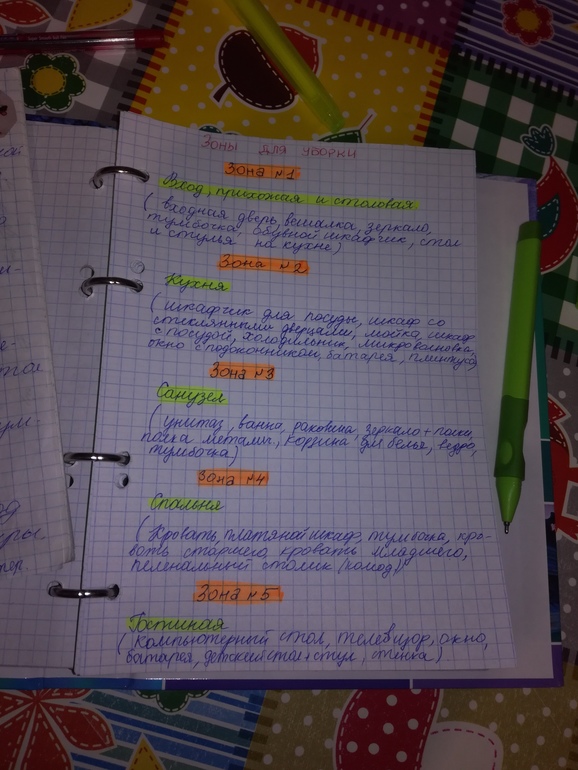 Зоны для уборки
Зона №1
Вход, прихожая и столовая
( входная дверь, вешалка, зеркало,
тумбочка, обувной шкафчик, стол
и стулья на кухне)
Зона №2
Кухня
( шкафчик для посуды, шкаф со
стеклянными дверцами, мойка, шкаф
с посудой, холодильник, микроволновка,
окно с подоконником, батарея, плинтуса)
Зона №3
Санузел
( унитаз, ванна, раковина, зеркало + полки,
полка металл., корзина для белья, ведро,
тумбочка)
Зона №4
Спальня
( Кровать, платяной шкаф, тумбочка, кро-
вать старшего кровать младшего,
пеленальный столик (комод)
Зона №5
Гостиная
( Компьютерный стол, телевизор, окно,
батарея, детский стол + стул, стенка)